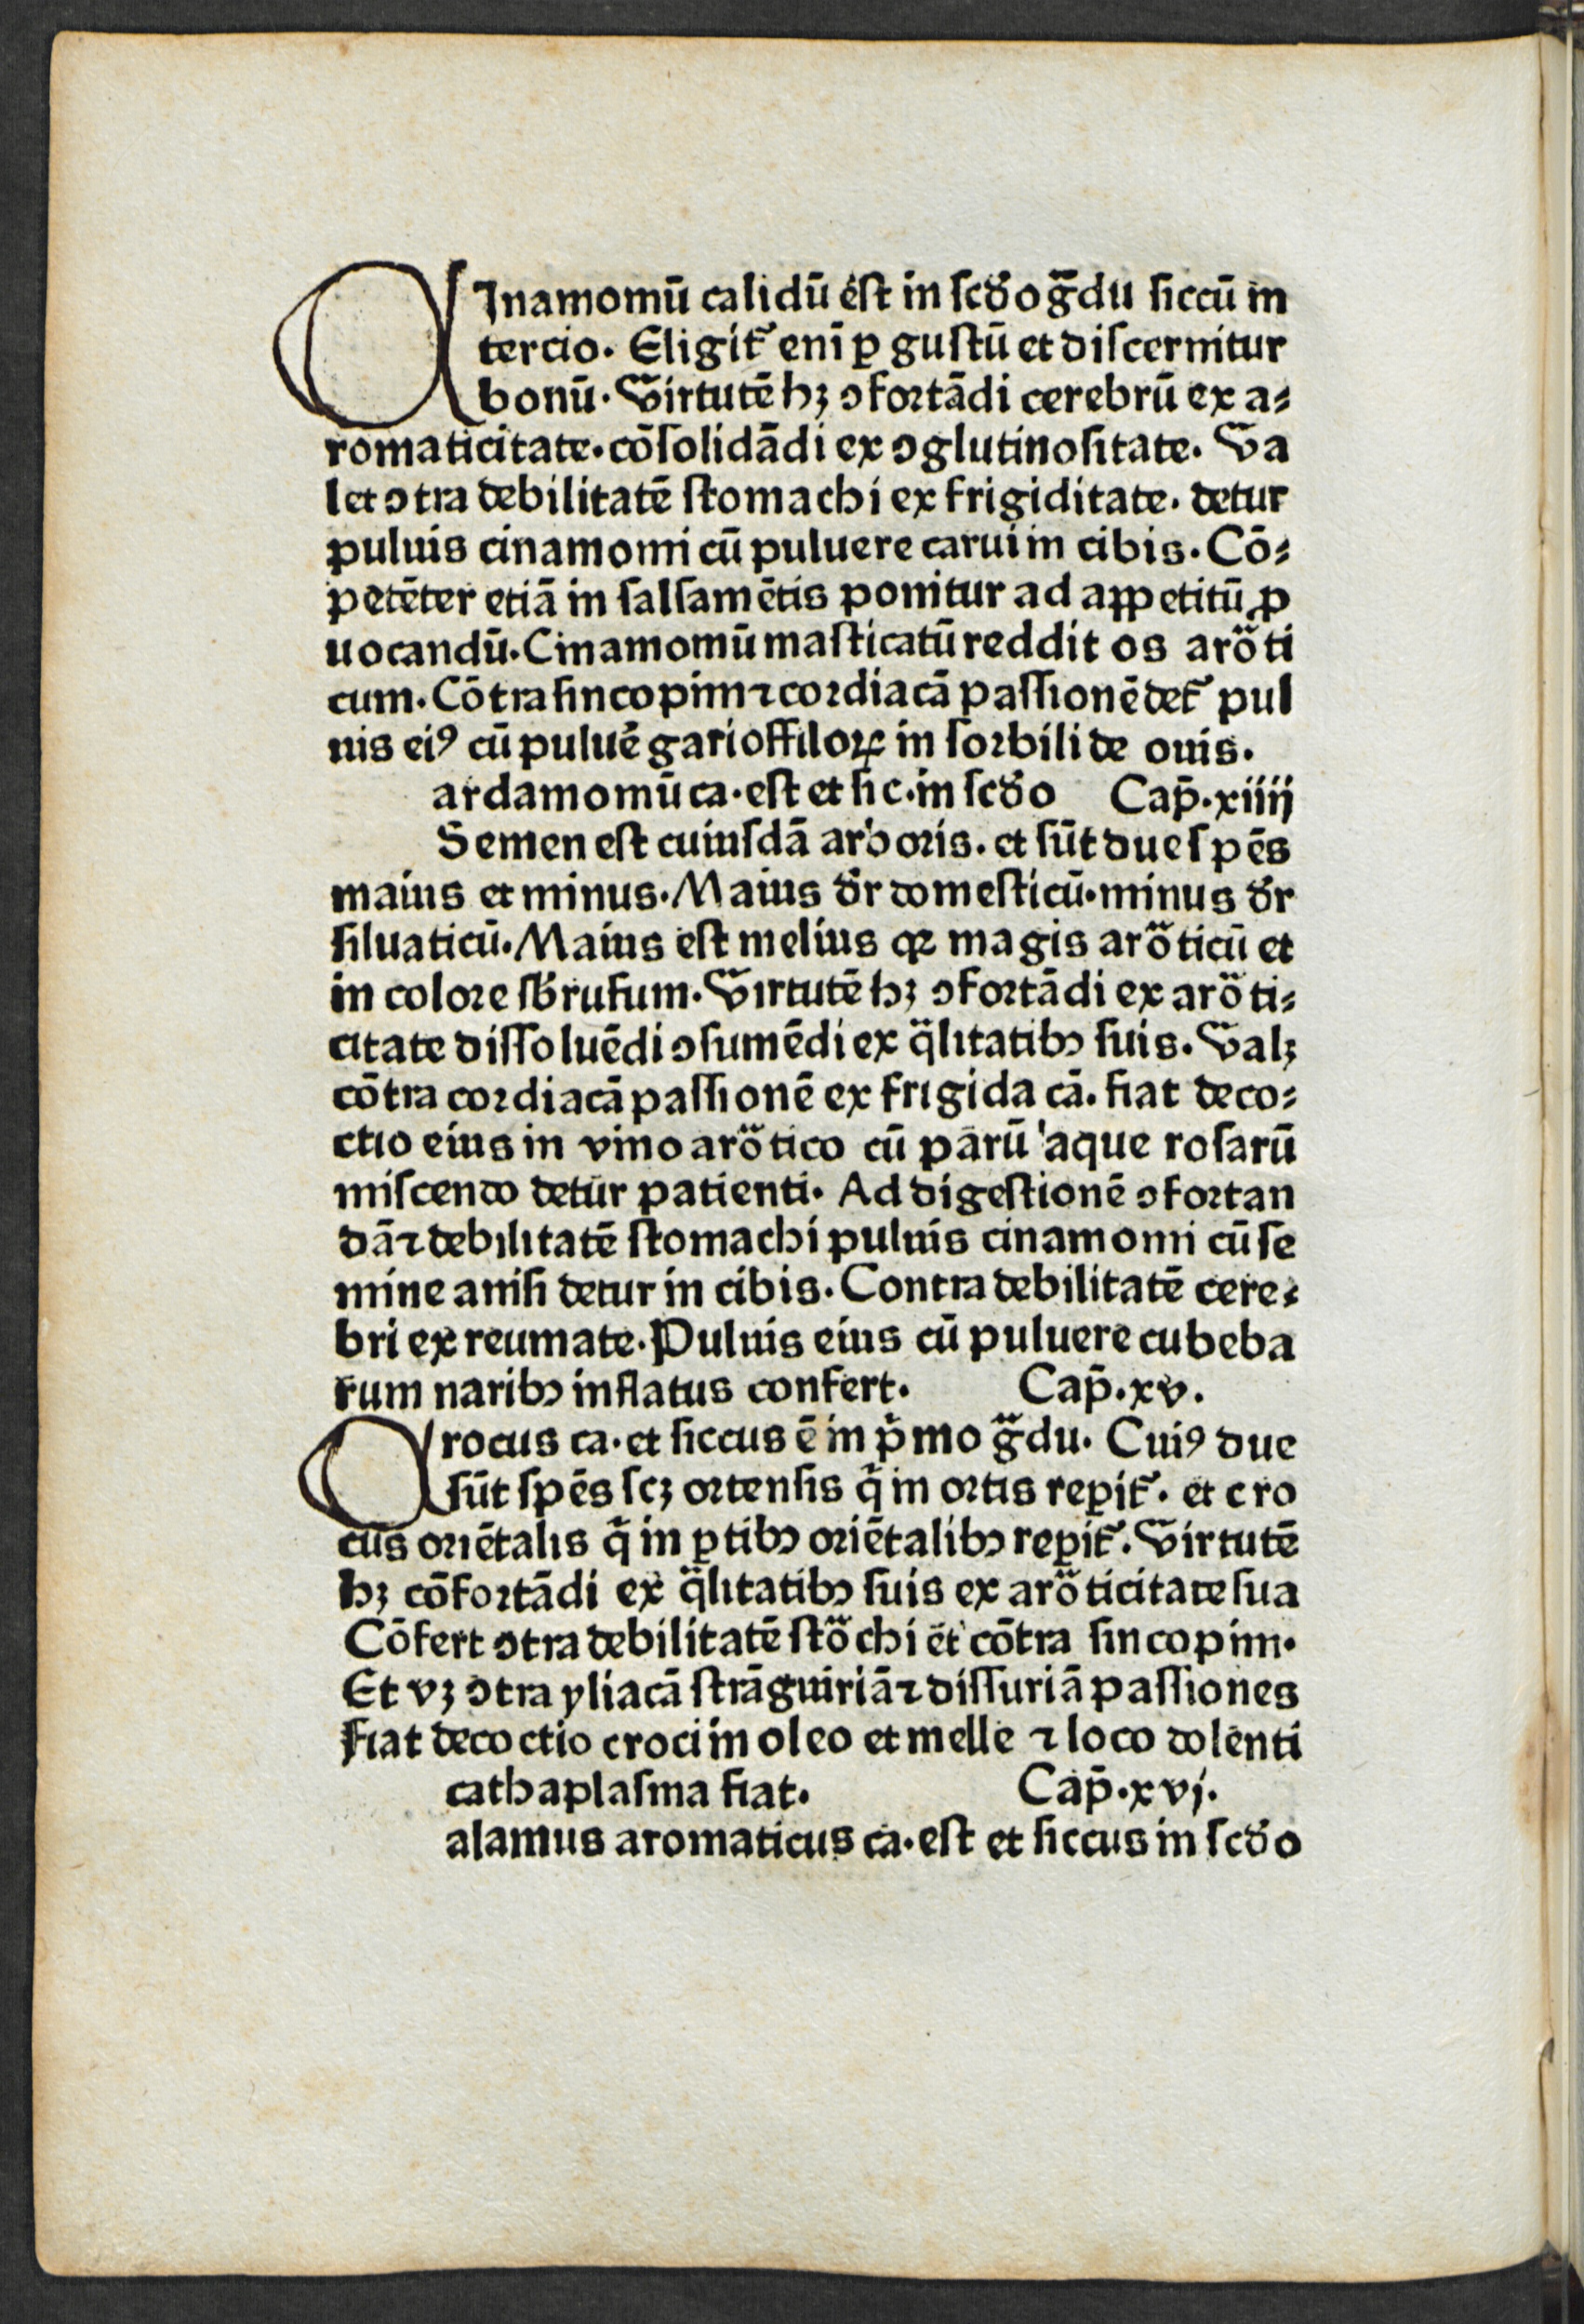 CInamomū calidū est in scďo g̈du siccū in
tercio. Eligit᷑ enī ꝑ gustū et discernitur
bonū. Virtutē hꝫ ꝯfortādi cerebrū ex a⸗
romaticitate. cōsolidādi ex ꝯglutinositate. Va
let ꝯtra debilitatē stomachi ex frigiditate. detur
puluis cinamomi cū puluere carui in cibis. Cō⸗
petēter etiā in salsamētis ponitur ad appetitū ꝓ
uocandū. Cinamomū masticatū reddit os aro̎ti
cum. Cōtra sincopim ⁊ cordiacā passionē det᷑ pul
uis eiꝰ cū puluē̉ garioffiloꝝ in sorbili de ouis.
ardamomū ca. est et sic. in scďo Cap̄. xiiij
Semen est cuiusdā arboris. et sūt due spēs
maius et minus. Maius dr̄ domesticū. minus dr̄
siluaticū. Maius est melius qꝛ magis aro̎ticū et
in colore sb̄rufum. Virtutē hꝫ ꝯfortādi ex aro̎ti⸗
citate dissoluēdi ꝯsumēdi ex q̈litatibꝫ suis. Valꝫ
cōtra cordiacā passionē ex frigida cā. fiat deco⸗
ctio eius in vino aro̎tico cū parū aque rosarū
miscendo detur patienti. Ad digestionē ꝯfortan
dā ⁊ debilitatē stomachi puluis cinamomi cū se
mine anisi detur in cibis. Contra debilitatē cere⸗
bri ex reumate. Puluis eius cū puluere cubeba
rum naribꝫ inflatus confert. Cap̄. xv.
Crocus ca. et siccus ē in p̉mo g̈du. Cuiꝰ due
sūt spēs scꝫ ortensis q̉ in ortis repit᷑. et cro
cus oriētalis q̉ in ꝑtibꝫ oriētalibꝫ repit᷑. Virtutē
hꝫ cōfortādi ex q̈litatibꝫ suis ex aro̎ticitate sua
Cōfert ꝯtra debilitatē sto̎chi et cōtra sincopim.
Et vꝫ ꝯtra yliacā strāguiriā ⁊ dissuriā passiones
Fiat decoctio croci in oleo et melle ⁊ loco dolenti
cathaplasma fiat. Cap̄. xvj.
alamus aromaticus ca. est et siccus in scďo